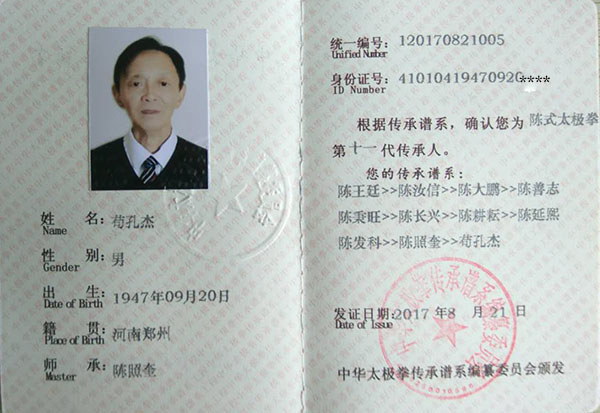 姓 名: 苟孔杰
Name
性 别: 男
Gender
出 生: 1947年09月20日
Date of Birth
籍 贯: 河南郑州
Place of Birth
师 承: 陈照奎
Master
统一编号: 120170821005
Unified Number
身份证号: 41010419470920****
ID Number
根据传承谱系,确认您为 陈式太极拳
第 十一 代传承人。
您的传承谱系:
陈王廷>>陈汝信>>陈大鹏>>陈善志
陈秉旺>>陈长兴>>陈耕耘>>陈延熙
陈发科>>陈照奎>>苟孔杰
发证日期:2017 年8 月 21 日
Date of Issue
中华太极拳传承谱系编纂委员会颁发
中华太极拳传承谱系编纂委员会